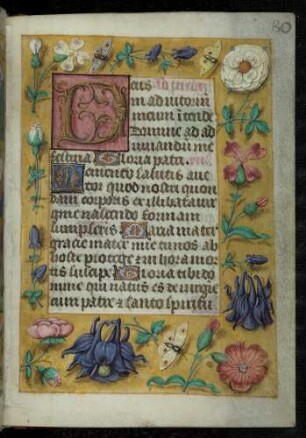 80
Deus
in adiutoriū
meum ītende
Domine ad ad
iuuandū me
festina Gloria patri.
Memento salutis auc
tor quod nostri quon
dam corporis ex illibata uir
gine nascendo formam
sumpseris Maria mater
gracie mater mīe tu nos ab
hoste protege & in hora mor
tis suscipe Gloria tibi do
mine qui natus es de uirgīe
cum patre & sancto spiritu